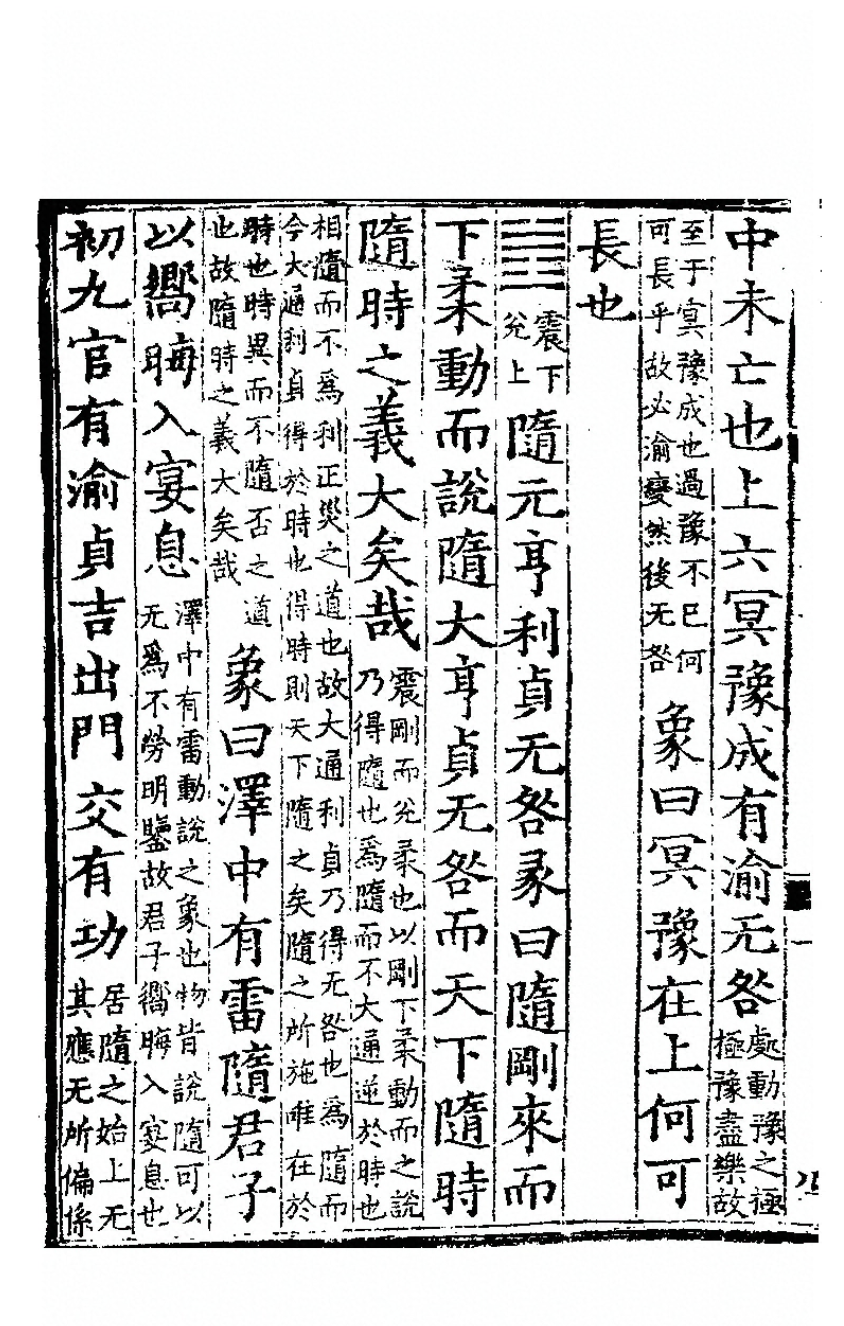 中未亡也上六冥豫成有渝无咎
處動豫之極
極豫盡樂故
至于冥豫成也過豫不已何
可長乎故必渝變然後无咎
象曰冥豫在上何可
長也
䷐
震下
兌上
隨元亨利貞无咎彖曰隨剛來而
下柔動而說隨大亨貞无咎而天下隨時
隨時之義大矣哉
震剛而兌柔也以剛下柔動而之說
乃得隨也爲隨而不大通逆於時也
相隨而不爲利正災之道也故大通利貞乃得无咎也爲隨而
今大通利貞得於時也得時則天下隨之矣隨之所施唯在於
時也時異而不隨否之道
也故隨時之義大矣哉
象曰澤中有雷隨君子
以嚮晦入宴息
澤中有雷動說之象也物皆說隨可以
无爲不勞明鑒故君子嚮晦入宴息也
初九官有渝貞吉出門交有功
居隨之始上无
其應无所偏係